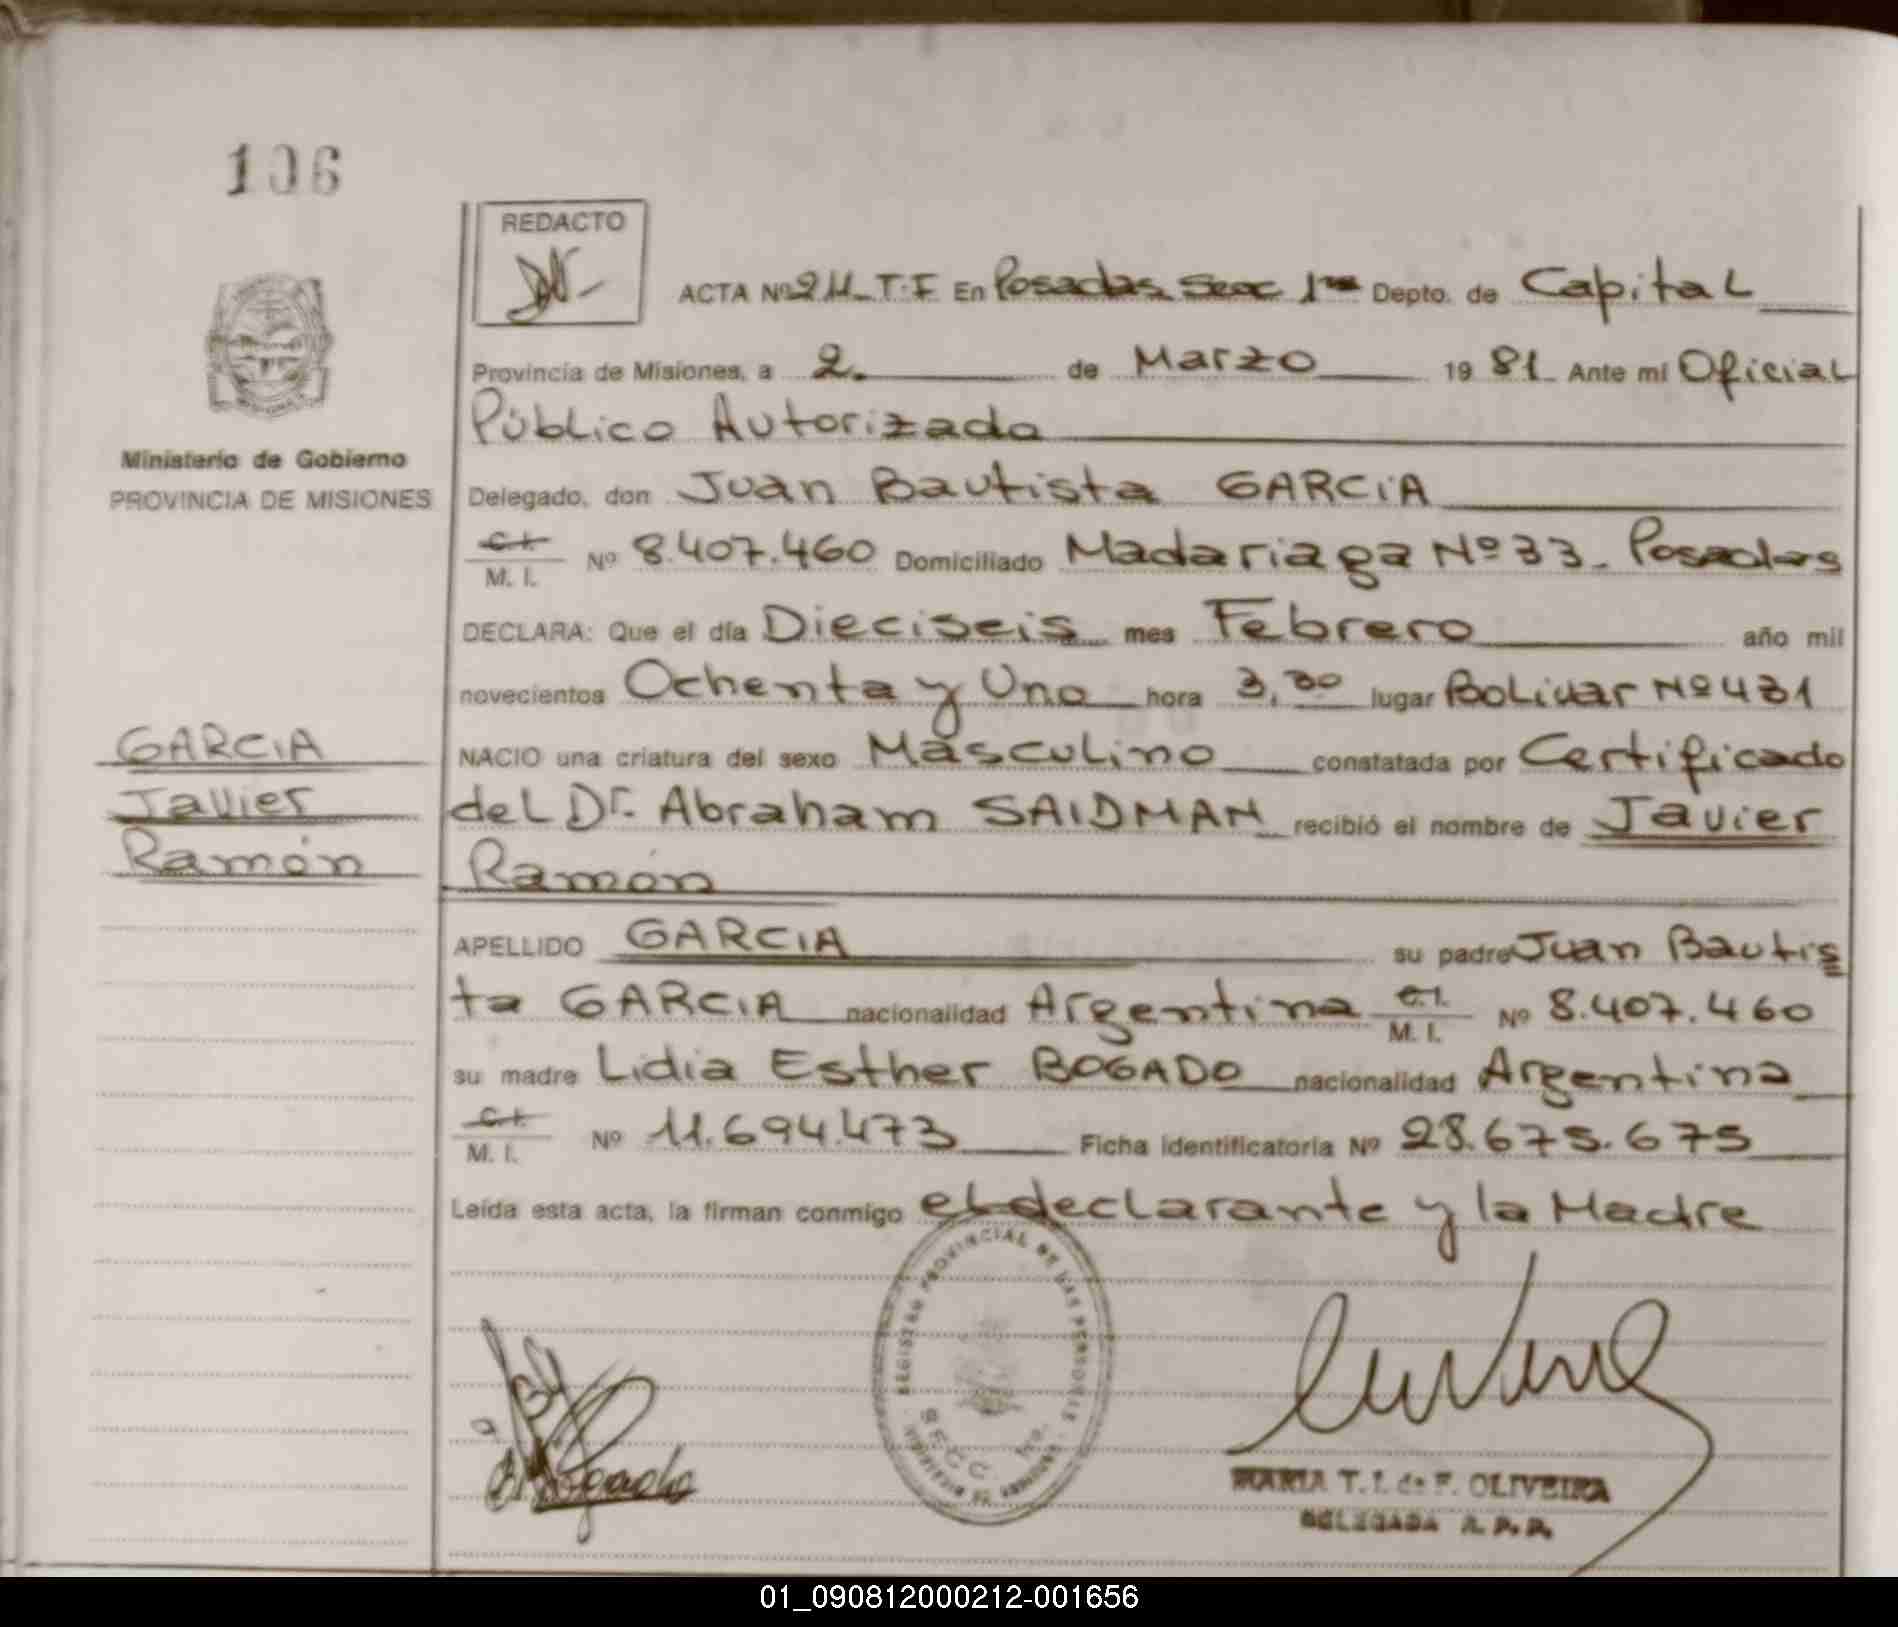 106
REDACTO
ACTA Nº 211 T.I En Posadas Secc 1ra Depto. de Capital
Provincia de Misiones, a 2. de Marzo 1981 Ante mi Oficial
Público Autorizado
Ministerio de Gobierno
PROVINCIA DE MISIONES
Delegado, don Juan Bautista GARCIA
C.I. M. I. Nº 8.407.460 Domiciliado Madariaga Nº 33. Posadas
DECLARA: Que el día Dieciseis mes Febrero año mil
novecientos Ochenta y Uno hora 3,30 lugar Bolivar Nº 431
GARCIA
Javier
Ramón
NACIO una criatura del sexo Masculino constatada por Certificado
del Dr. Abraham SAIDMAN recibió el nombre de Javier
Ramón
APELLIDO GARCIA su padre Juan Bautis
ta GARCIA nacionalidad Argentina C.I. M. I. Nº 8.407.460
su madre Lidia Esther BOGADO nacionalidad Argentina
C.I. M. I. Nº 11.694.473 Ficha identificatoria Nº 28.675.675
Leída esta acta, la firman conmigo el declarante y la Madre
REGISTRO PROVINCIAL DE LAS PERSONAS
SECC. 1ra.
MARIA T. I. de F. OLIVEIRA
DELEGADA R. P. P.
01_090812000212-001656